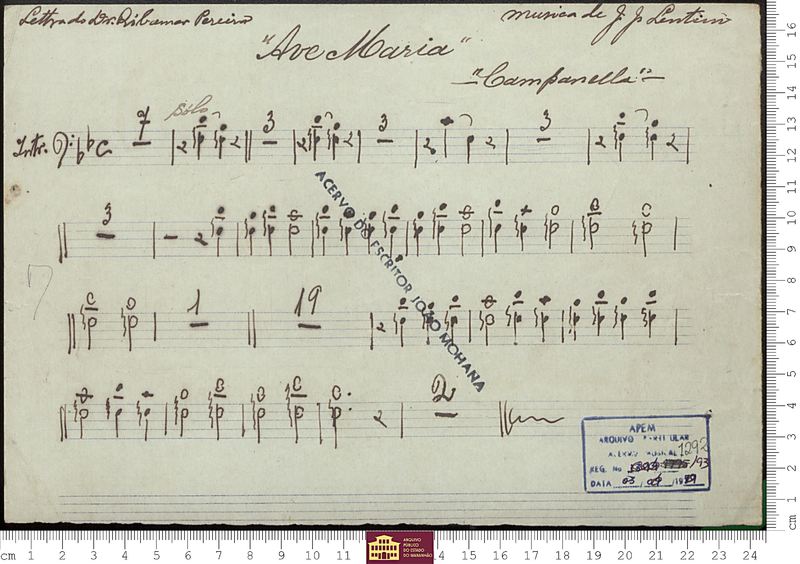 Lettra do Dr. Ribamar Pereira
musica de J. J. Lentini
"Ave Maria"
"Campanella"
Intr. 7 sólo 3 3 3
3
1 19
2
ACERVO DO ESCRITOR JOÃO MOHANA
APEM
ARQUIVO PARTICULAR
1292
REG. No /93
DATA 03
ARQUIVO
PÚBLICO
DO ESTADO
DO MARANHÃO
cm 1 2 3 4 5 6 7 8 9 10 11 14 15 16 17 18 19 20 21 22 23 24
cm 1 2 3 4 5 6 7 8 9 10 11 12 13 14 15 16